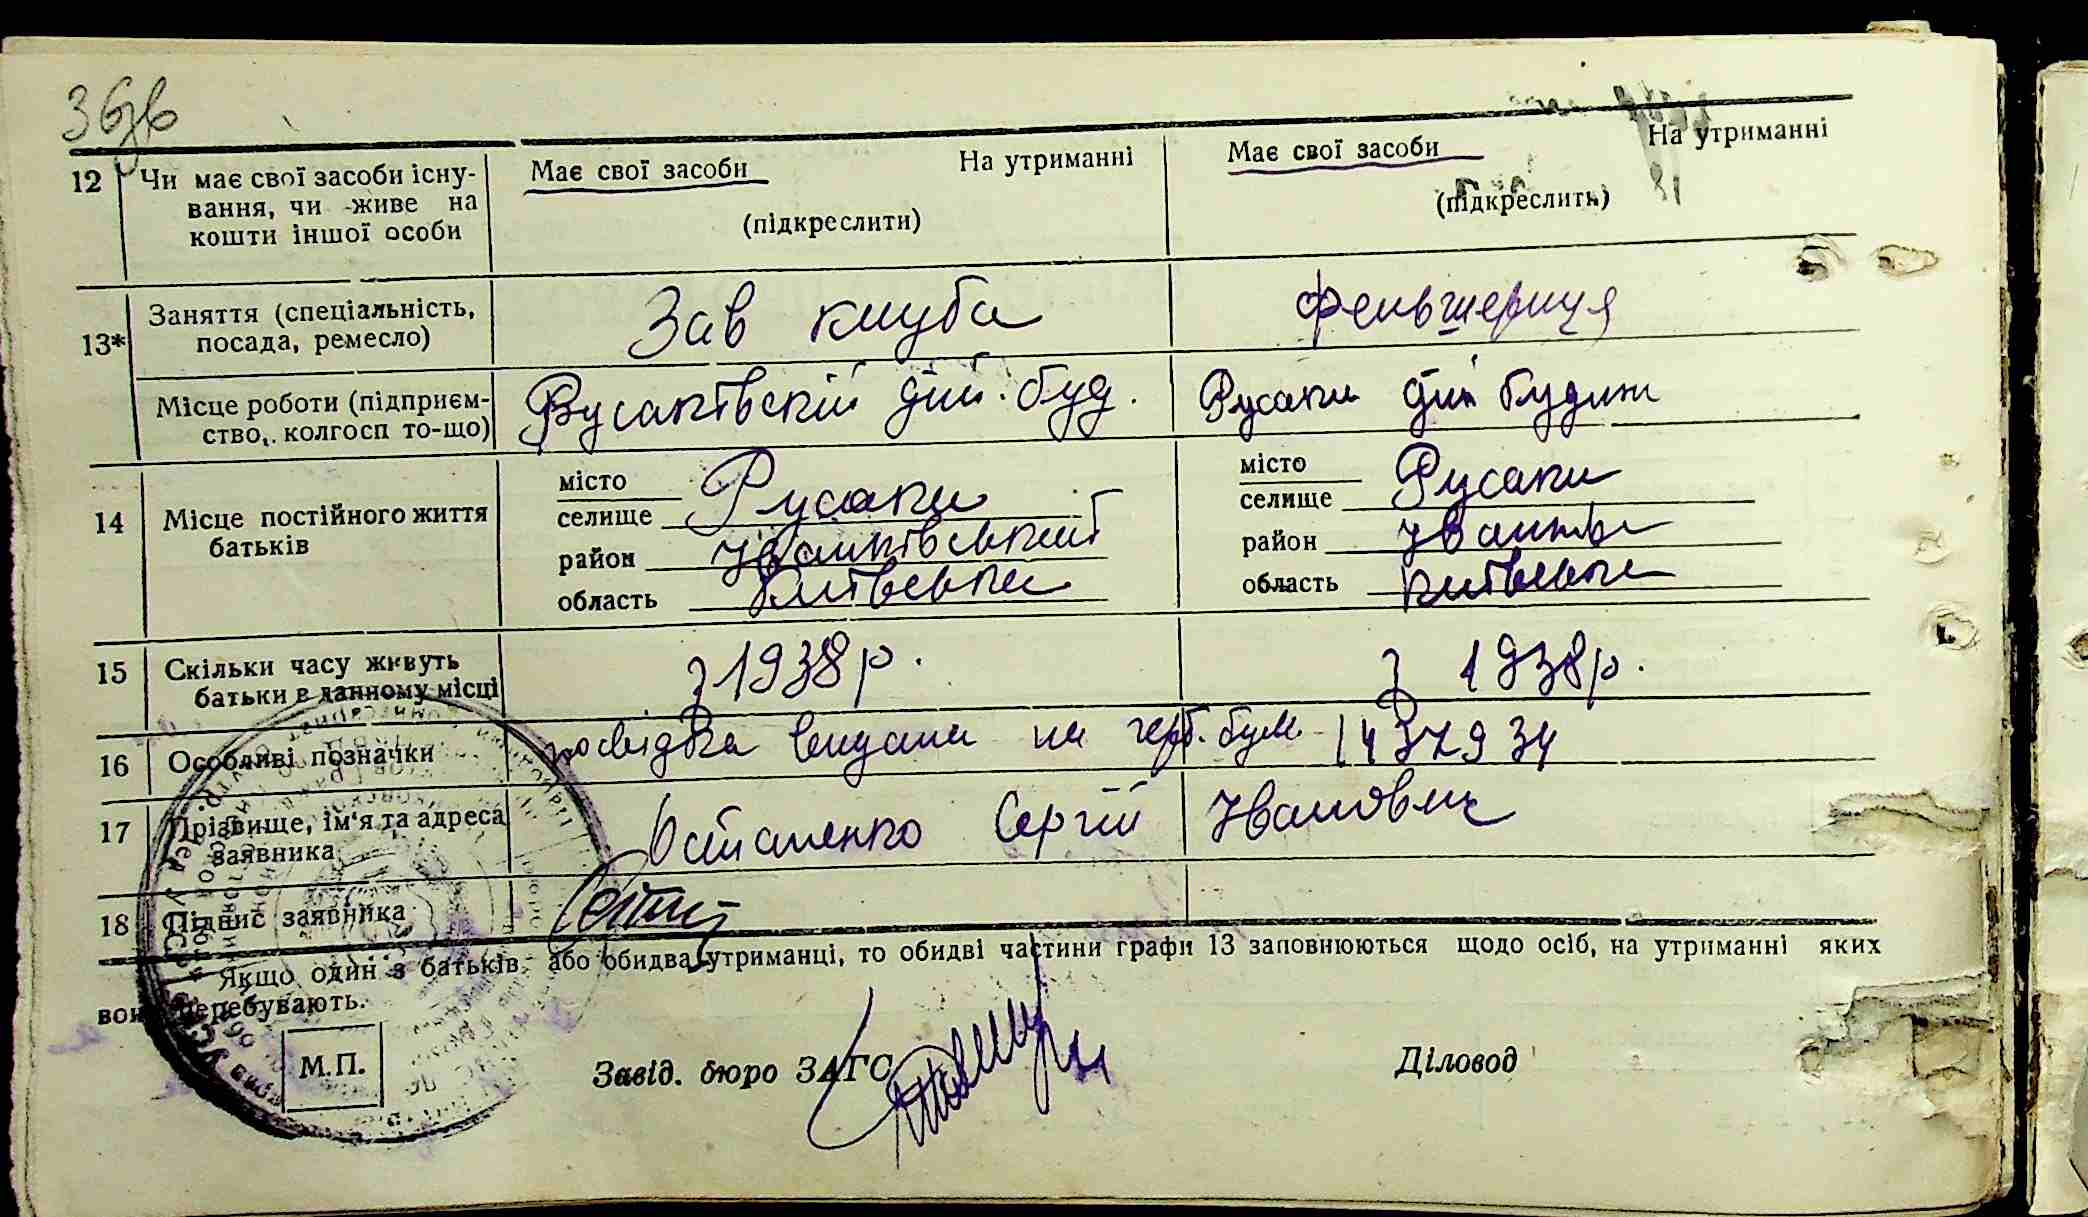 36зв
12 Чи має свої засоби існу- Має свої засоби На утриманні Має свої засоби На утриманні
вання, чи живе на (підкреслити) (підкреслить)
кошти іншої особи
13* Заняття (спеціальність, Зав клуба Фельшериця
посада, ремесло)
Місце роботи (підприєм- Русаківській дит. буд. Русаки дит будин
ство, колгосп то-що)
14 Місце постійного життя батьків місто Русаки місто Русаки
селище селище
район Іванківський район Іванків
область Київська область Київська
15 Скільки часу живуть з 1938 р. з 1938 р.
батьки в данному місці
16 Особливі позначки посвідка видана на герб. бум.
17 Прізвище, ім'я та адреса Остапенко Сергій Іванович
заявника
18 Підпис заявника
Якщо один з батьків або обидва утриманці, то обидві частини графи 13 заповнюються щодо осіб, на утриманні яких
вони перебувають.
М.П. Завід. бюро ЗАГС Діловод